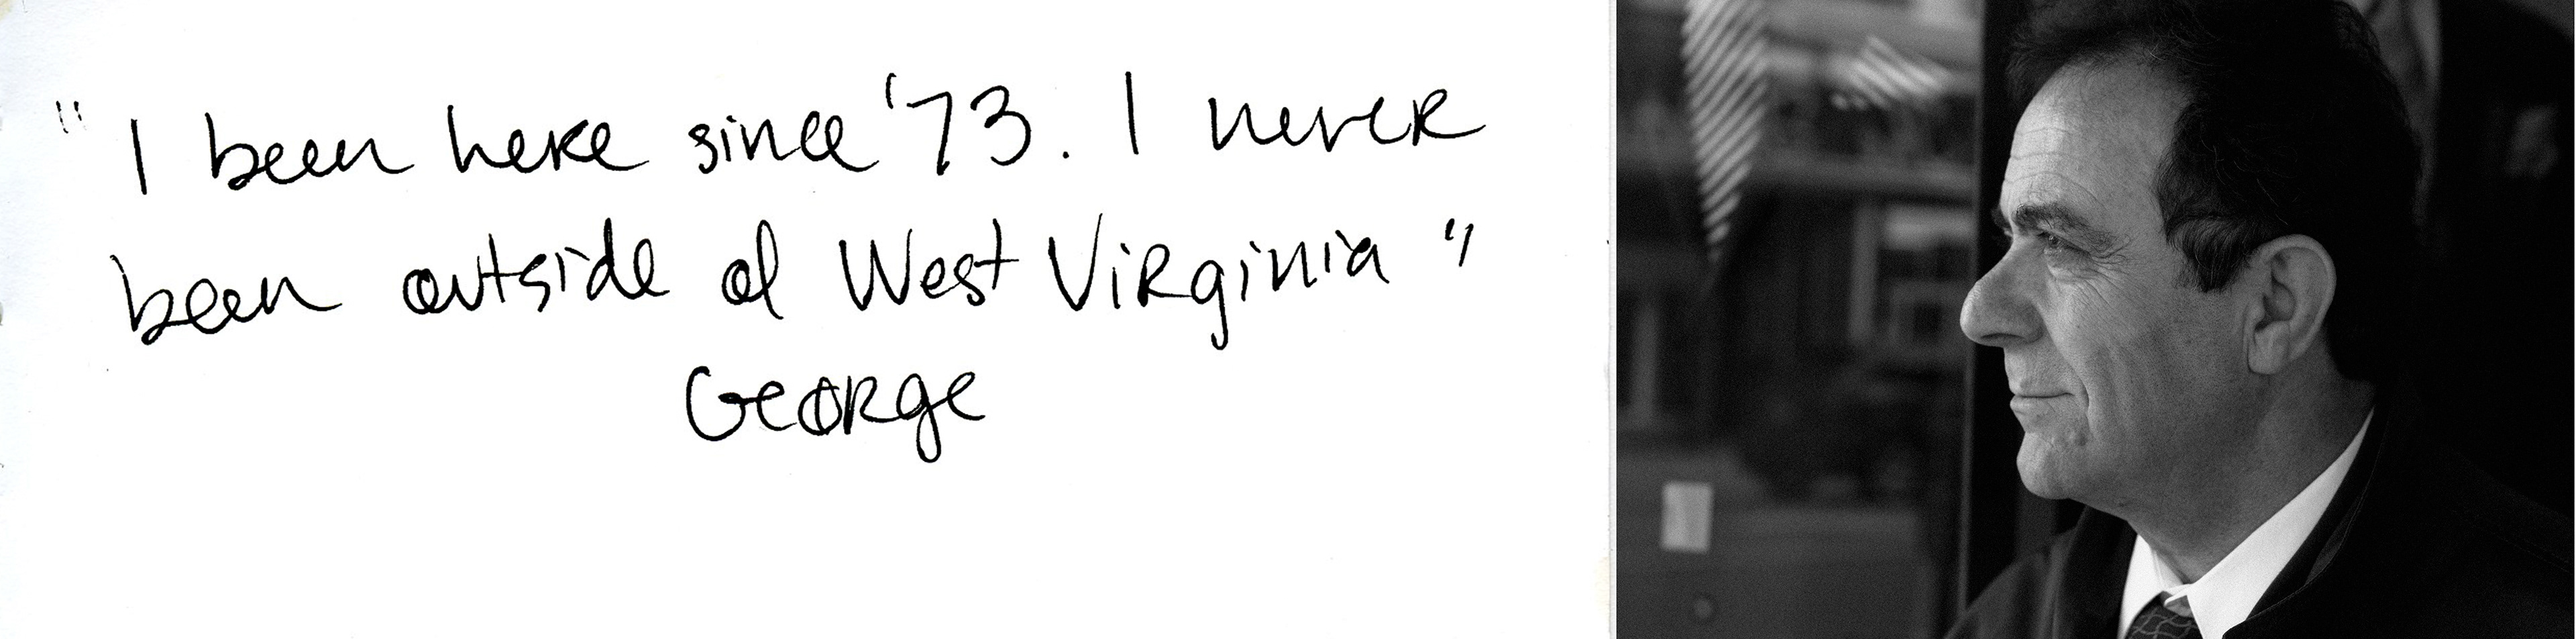 "I been here since '73. I never
been outside of West Virginia"
George